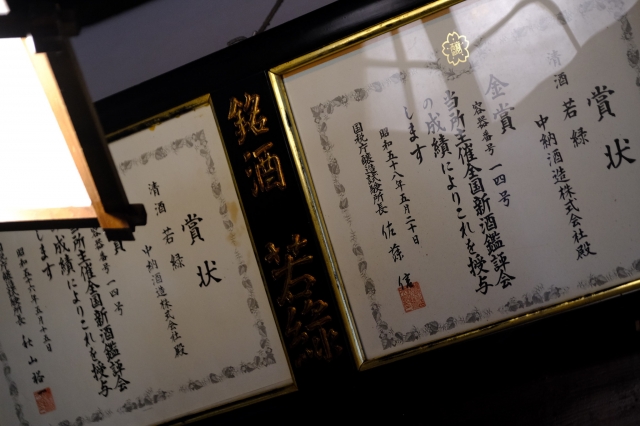 賞状
清酒 若緑
中納酒造株式会社殿
金賞
容器番号 一四号
当所主催全国新酒鑑評会
の成績によりこれを授与
します
昭和五十八年五月二十日
国税庁醸造試験所長 佐藤 信
銘酒 若緑
賞状
清酒 若緑
中納酒造株式会社殿
賞
番号 一四号
当所主催全国新酒鑑評会
成績によりこれを授与
します
昭和五六年五月十五日
醸造試験所長 秋山裕